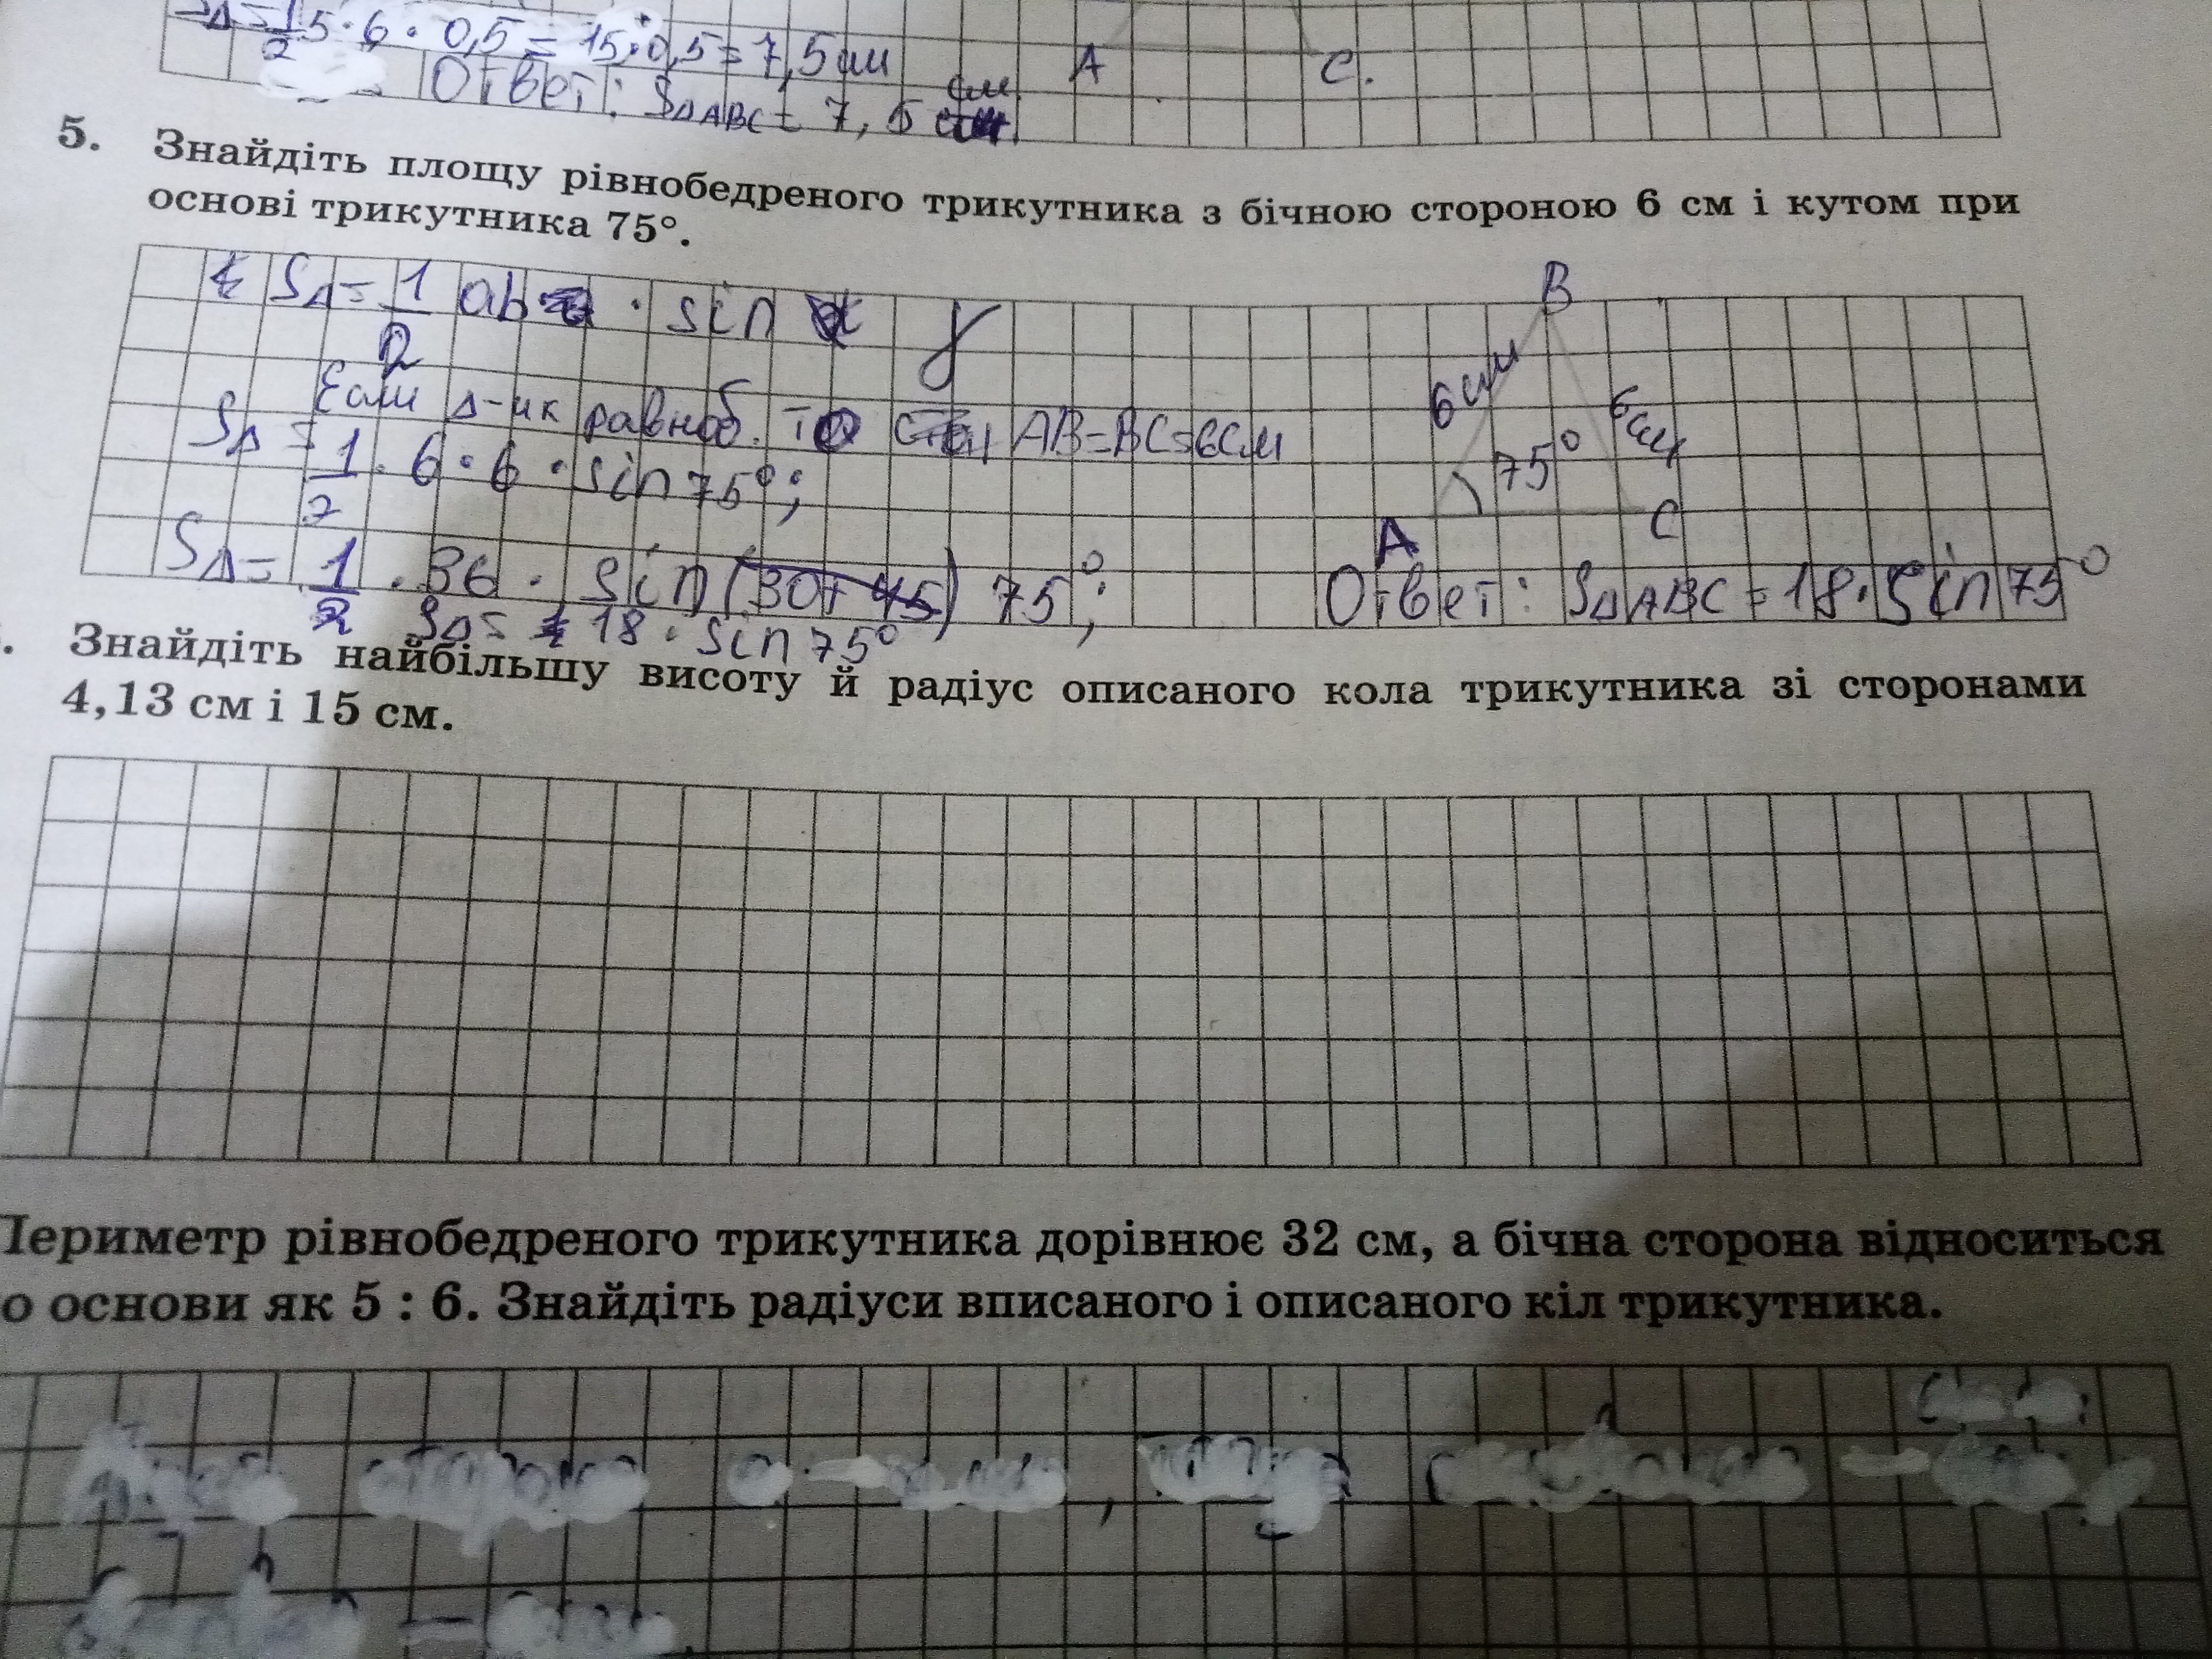 S△ = 1/2 5·6·0,5 = 15·0,5 = 7,5 см
Ответ: S△ABC = 7,5 см
A C.
5. Знайдіть площу рівнобедреного трикутника з бічною стороною 6 см і кутом при
основі трикутника 75°.
S△ = 1/2 ab · sin γ
Если △-ик равноб. то AB=BC=6см
S△ = 1/2 · 6 · 6 · sin 75°;
S△ = 1/2 · 36 · sin (30+45) 75°;
S△ = 18 · sin 75°
B
6см 6см
75°
A C
Ответ: S△ABC = 18 · Sin 75°
. Знайдіть найбільшу висоту й радіус описаного кола трикутника зі сторонами
4,13 см і 15 см.
Периметр рівнобедреного трикутника дорівнює 32 см, а бічна сторона відноситься
о основи як 5 : 6. Знайдіть радіуси вписаного і описаного кіл трикутника.